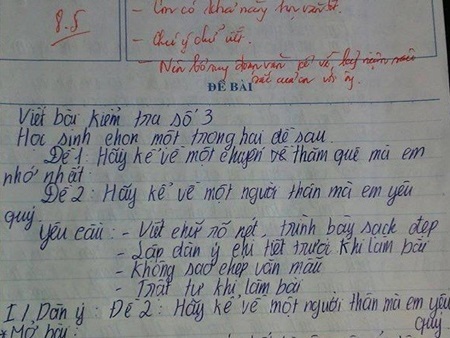 8.5
- Con có khả năng học văn tốt.
- Chú ý chữ viết.
- Nên bổ sung đoạn văn
ĐỀ BÀI
Viết bài kiểm tra số 3
Học sinh chọn một trong hai đề sau.
Đề 1: Hãy kể về một chuyến về thăm quê mà em
nhớ nhất.
Đề 2: Hãy kể về một người thân mà em yêu
quý
Yêu cầu: - Viết chữ rõ nét, trình bày sạch đẹp
- Lập dàn ý chi tiết trước khi làm bài
- Không sao chép văn mẫu
- Trật tự khi làm bài
I, Dàn ý: Đề 2: Hãy kể về một người thân mà em yêu
quý
* Mở bài: